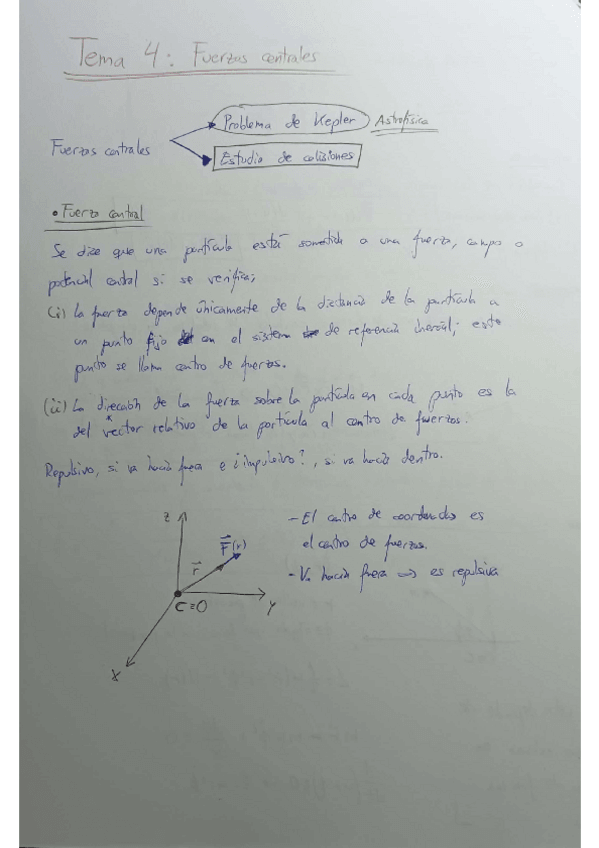 Tema 4: Fuerzas centrales
Problema de Kepler Astrofísica
Fuerzas centrales
Estudio de colisiones
• Fuerza central
Se dize que una partícula está sometida a una fuerza, campo o
potencial central si se verifica;
(i) La fuerza depende únicamente de la distancia de la partícula a
un punto fijo en el sistema de referencia inercial; este
punto se llama centro de fuerzas.
(ii) La dirección de la fuerza sobre la partícula en cada punto es la
del vector relativo de la partícula al centro de fuerzas.
Repulsivo, si va hacia fuera e ¿impulsivo?, si va hacia dentro.
z
F(r)
r
C≡O
y
x
- El centro de coordenadas es
el centro de fuerzas.
- Va hacia fuera => es repulsiva